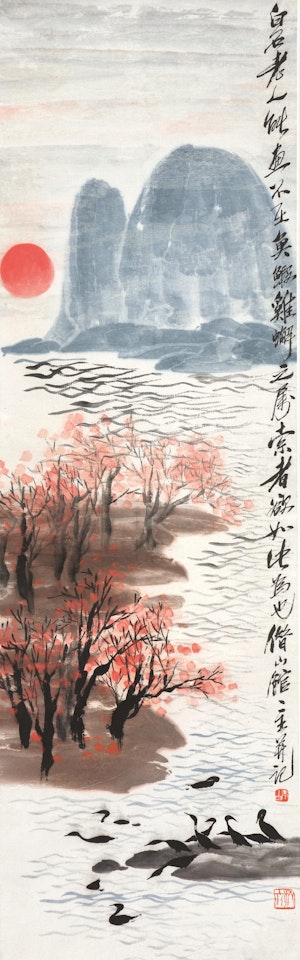 白石老人能画不在魚蝦雞蠏之属索者欲如此為也借山館主并記